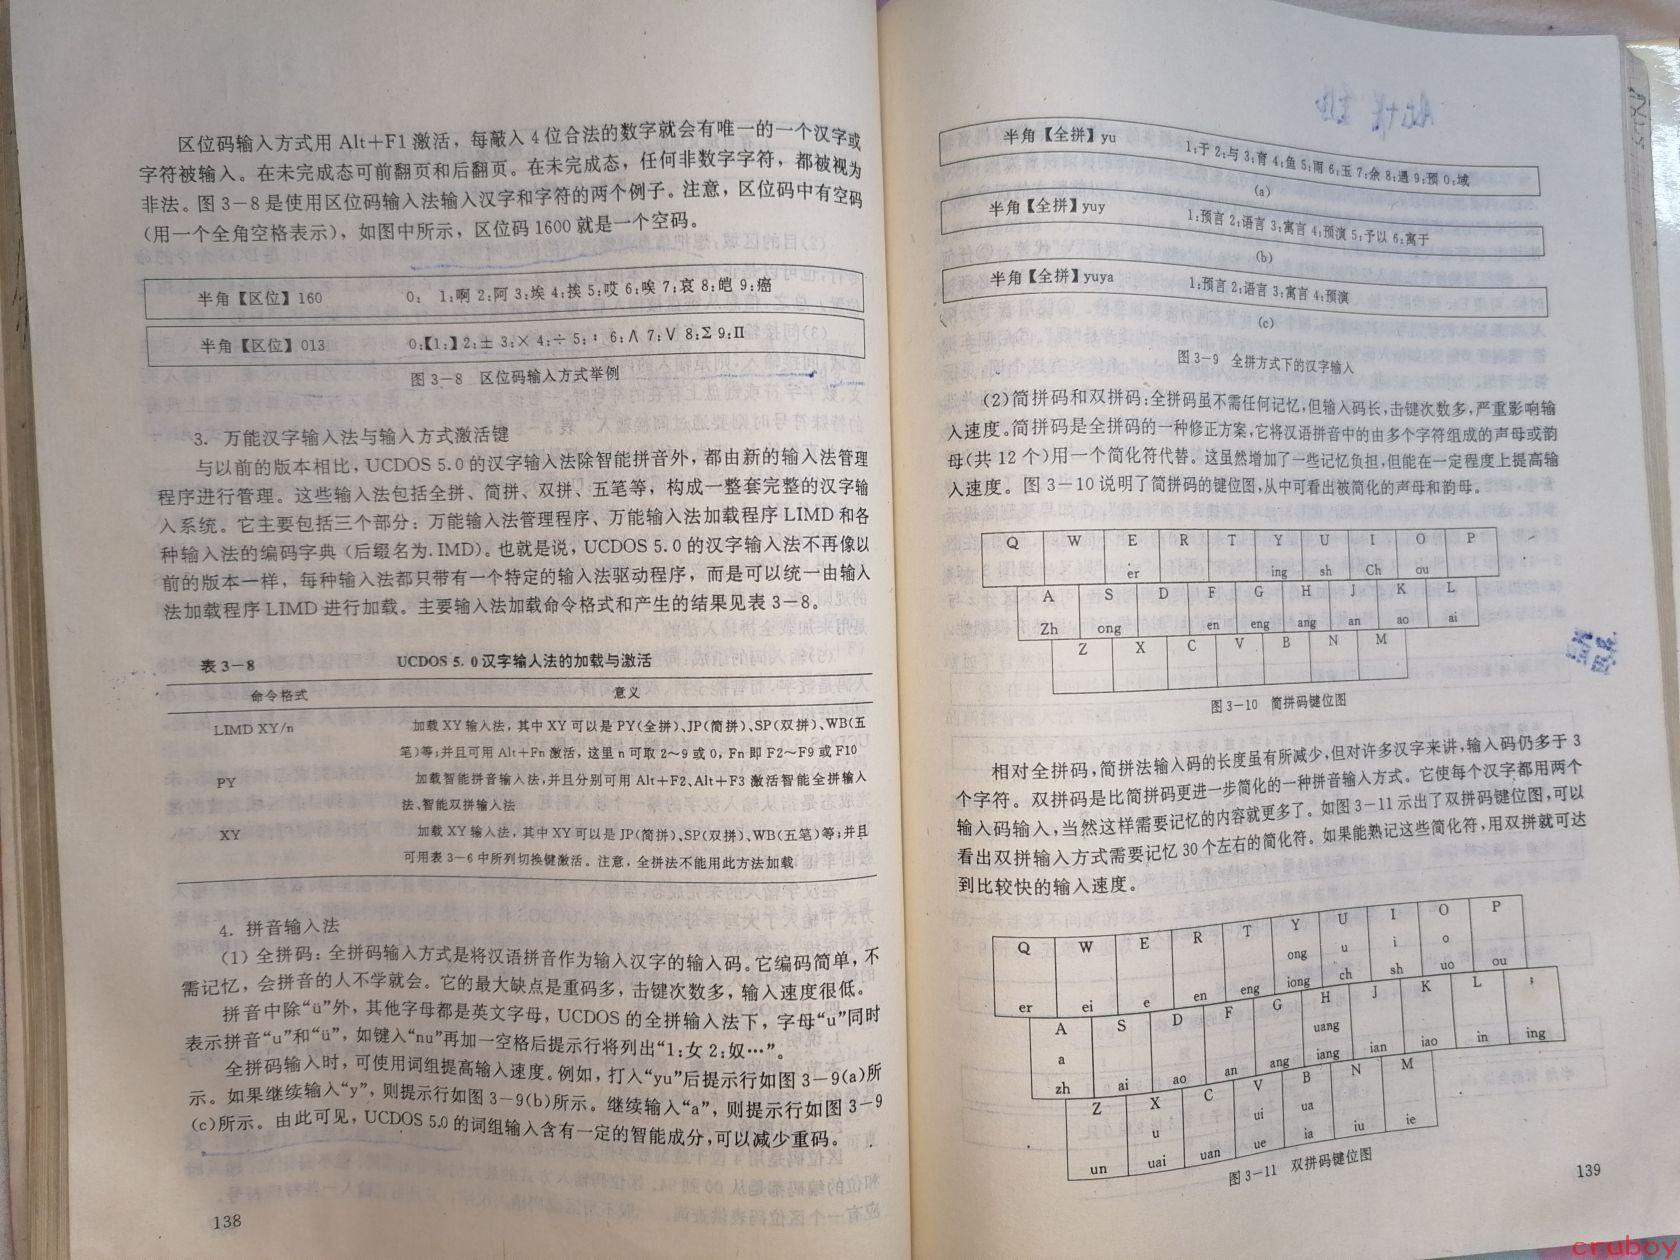 区位码输入方式用 Alt+F1 激活，每敲入 4 位合法的数字就会有唯一的一个汉字或
字符被输入。在未完成态可前翻页和后翻页。在未完成态，任何非数字字符，都被视为
非法。图 3-8 是使用区位码输入法输入汉字和字符的两个例子。注意，区位码中有空码
(用一个全角空格表示)，如图中所示，区位码 1600 就是一个空码。
半角【区位】160 0: 1:啊 2:阿 3:埃 4:挨 5:哎 6:唉 7:哀 8:皑 9:癌
半角【区位】013 0:【1:】2:± 3:× 4:÷ 5:∶ 6:∧ 7:∨ 8:Σ 9:Π
图 3-8 区位码输入方式举例
3. 万能汉字输入法与输入方式激活键
与以前的版本相比，UCDOS 5.0 的汉字输入法除智能拼音外，都由新的输入法管理
程序进行管理。这些输入法包括全拼、简拼、双拼、五笔等，构成一整套完整的汉字输
入系统。它主要包括三个部分：万能输入法管理程序、万能输入法加载程序 LIMD 和各
种输入法的编码字典（后缀名为.IMD)。也就是说，UCDOS 5.0 的汉字输入法不再像以
前的版本一样，每种输入法都只带有一个特定的输入法驱动程序，而是可以统一由输入
法加载程序 LIMD 进行加载。主要输入法加载命令格式和产生的结果见表 3-8。
表 3-8 UCDOS 5.0 汉字输入法的加载与激活
命令格式 意义
LIMD XY/n 加载 XY 输入法，其中 XY 可以是 PY(全拼)、JP(简拼)、SP(双拼)、WB(五
笔)等;并且可用 Alt+Fn 激活，这里 n 可取 2~9 或 0，Fn 即 F2~F9 或 F10
PY 加载智能拼音输入法，并且分别可用 Alt+F2、Alt+F3 激活智能全拼输入
法、智能双拼输入法
XY 加载 XY 输入法，其中 XY 可以是 JP(简拼)、SP(双拼)、WB(五笔)等;并且
可用表 3-6 中所列切换键激活。注意，全拼法不能用此方法加载
4. 拼音输入法
(1) 全拼码：全拼码输入方式是将汉语拼音作为输入汉字的输入码。它编码简单，不
需记忆，会拼音的人不学就会。它的最大缺点是重码多，击键次数多，输入速度很低。
拼音中除“ü”外，其他字母都是英文字母，UCDOS 的全拼输入法下，字母“u”同时
表示拼音“u”和“ü”，如键入“nu”再加一空格后提示行将列出“1:女 2:奴…”。
全拼码输入时，可使用词组提高输入速度。例如，打入“yu”后提示行如图 3-9(a)所
示。如果继续输入“y”，则提示行如图 3-9(b)所示。继续输入“a”，则提示行如图 3-9
(c)所示。由此可见，UCDOS 5.0 的词组输入含有一定的智能成分，可以减少重码。
138
半角【全拼】yu 1:于 2:与 3:育 4:鱼 5:雨 6:玉 7:余 8:遇 9:预 0:域
(a)
半角【全拼】yuy 1:预言 2:语言 3:寓言 4:预演 5:予以 6:寓于
(b)
半角【全拼】yuya 1:预言 2:语言 3:寓言 4:预演
(c)
图 3-9 全拼方式下的汉字输入
(2)简拼码和双拼码：全拼码虽不需任何记忆，但输入码长，击键次数多，严重影响输
入速度。简拼码是全拼码的一种修正方案，它将汉语拼音中的由多个字符组成的声母或韵
母(共 12 个)用一个简化符代替。这虽然增加了一些记忆负担，但能在一定程度上提高输
入速度。图 3-10 说明了简拼码的键位图，从中可看出被简化的声母和韵母。
Q W E R T Y U I O P
er ing sh Ch ou
A S D F G H J K L
Zh ong en eng ang an ao ai
Z X C V B N M
图 3-10 简拼码键位图
相对全拼码，简拼法输入码的长度虽有所减少，但对许多汉字来讲，输入码仍多于 3
个字符。双拼码是比简拼码更进一步简化的一种拼音输入方式。它使每个汉字都用两个
输入码输入，当然这样需要记忆的内容就更多了。如图 3-11 示出了双拼码键位图，可以
看出双拼输入方式需要记忆 30 个左右的简化符。如果能熟记这些简化符，用双拼就可达
到比较快的输入速度。
Q W E R T Y U I O P
ong u i o
er ei e en eng iong ch sh uo ou
A S D F G H J K L ;
a uang
zh ai ao an ang iang ian iao in ing
Z X C V B N M
u ui ua
un uai uan ue ia iu ie
图 3-11 双拼码键位图
139
cruboy